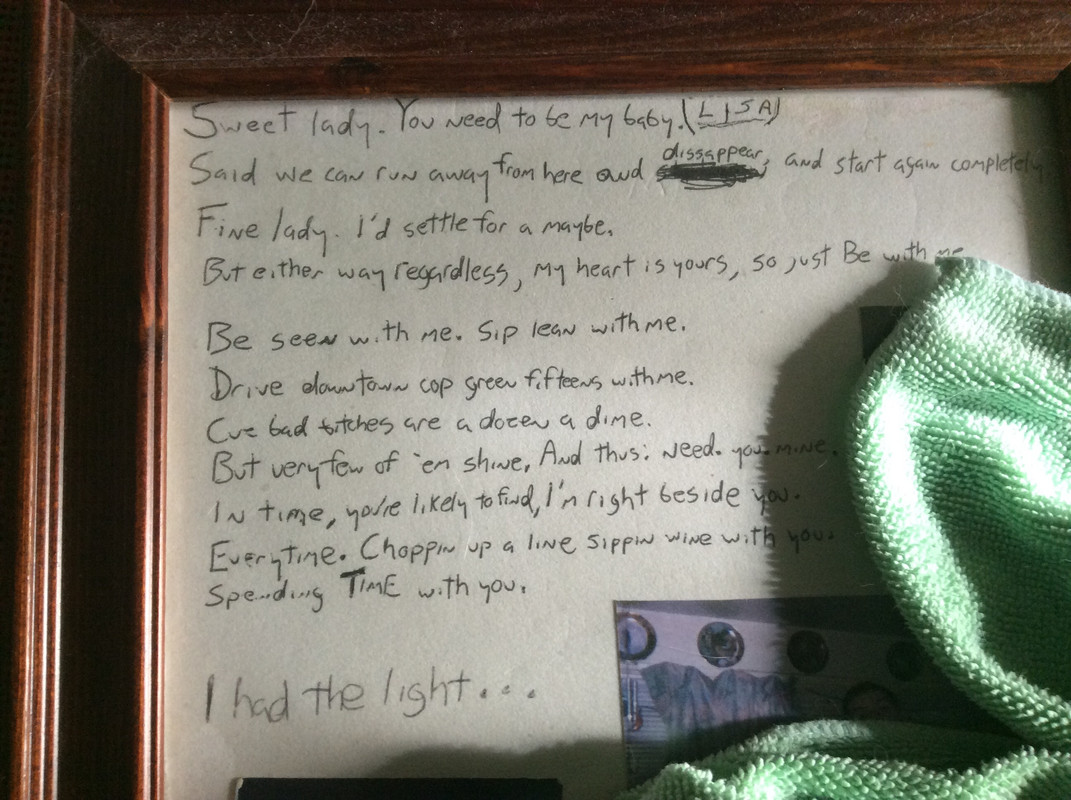 Sweet lady. You need to be my baby. (LISA)
Said we can run away from here and dissappear, and start again completely
Fine lady. I'd settle for a maybe.
But either way regardless, my heart is yours, so just Be with me
Be seen with me. Sip lean with me.
Drive downtown cop green fifteens with me.
Cuz bad bitches are a dozen a dime.
But very few of 'em shine, And thus: need. you. mine.
In time, you're likely to find, I'm right beside you.
Everytime. Choppin up a line sippin wine with you.
Spending TIME with you.
I had the light...